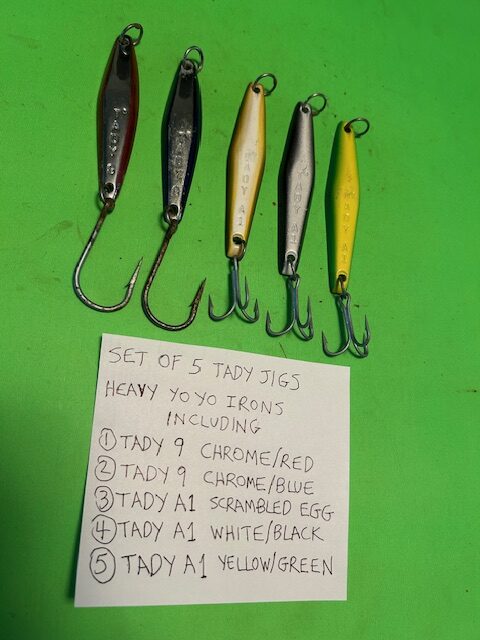 TADY 9
TADY 9
TADY A1
TADY A1
TADY A1
SET OF 5 TADY JIGS
HEAVY YOYO IRONS
INCLUDING
① TADY 9 CHROME/RED
② TADY 9 CHROME/BLUE
③ TADY A1 SCRAMBLED EGG
④ TADY A1 WHITE/BLACK
⑤ TADY A1 YELLOW/GREEN